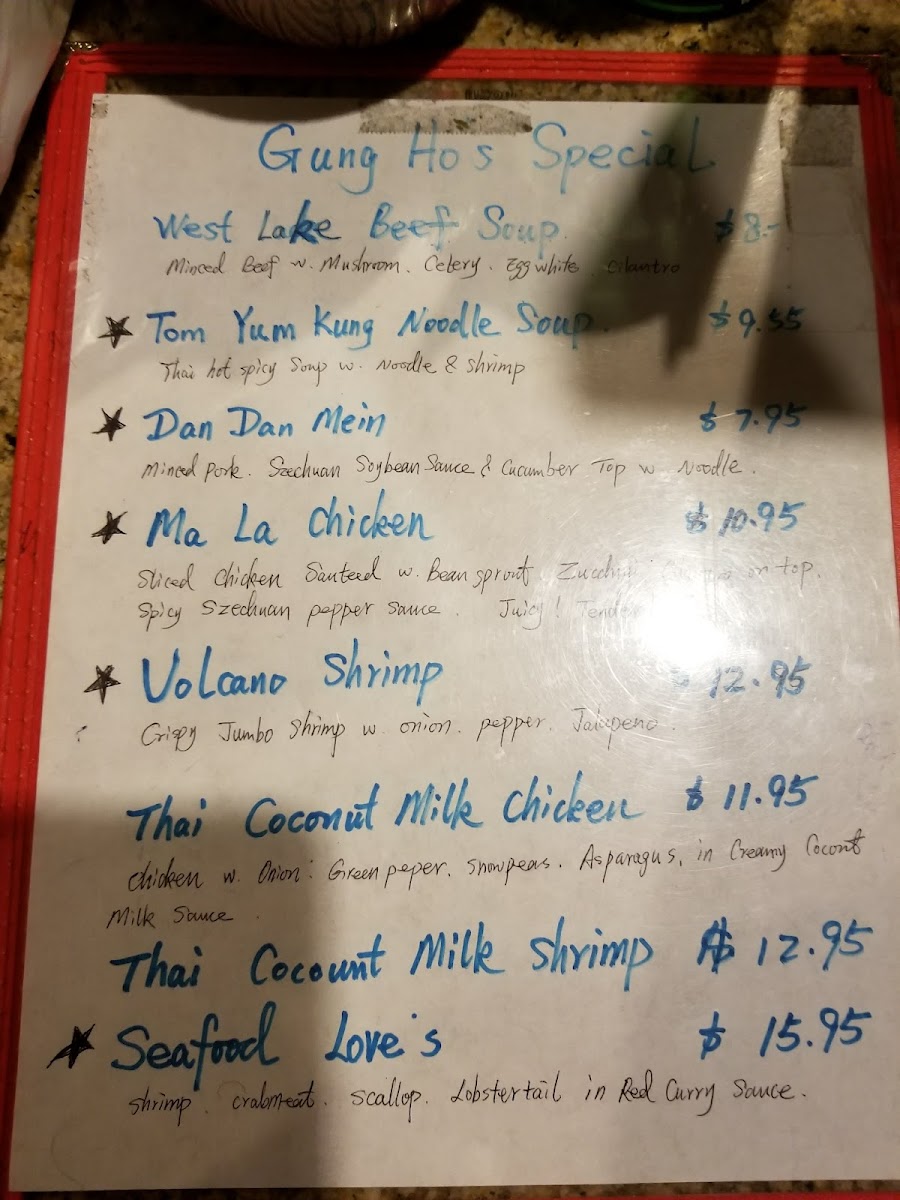 Gung Ho's Special
West Lake Beef Soup. $ 8.-
Minced Beef w. Mushroom. Celery. Egg white. cilantro
★ Tom Yum Kung Noodle Soup. $ 9.55
Thai hot spicy Soup w. Noodle & shrimp
★ Dan Dan Mein $ 7.95
minced pork. Szechuan Soybean Sauce & Cucumber Top w. Noodle.
★ Ma La Chicken $ 10.95
Sliced chicken Sauteed w. Bean sprout on top.
Spicy Szechuan pepper sauce. Juicy! Tender
★ Volcano Shrimp $ 12.95
Crispy Jumbo Shrimp w. onion. pepper. Jalapeno.
Thai Coconut Milk Chicken $ 11.95
chicken w. Onion. Green peper. Snowpeas. Asparagus, in Creamy Cocont
Milk Sauce.
Thai Cocount Milk shrimp $ 12.95
★ Seafood Love's $ 15.95
shrimp. crabmeat. scallop. Lobstertail in Red Curry Sauce.